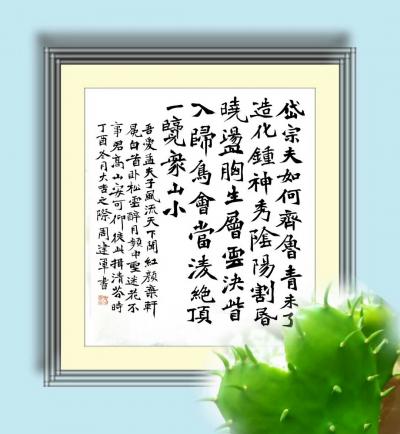 岱宗夫如何齊魯青未了
造化鐘神秀陰陽割昏
曉盪胸生層雲決眥
入歸鳥會當淩絕頂
一覽衆山小
吾愛孟夫子風流天下聞紅顏棄軒
冕白首卧松雲醉月頻中聖迷花不
事君高山安可仰徒此揖清芬時
丁酉冬月大吉之際周建軍書